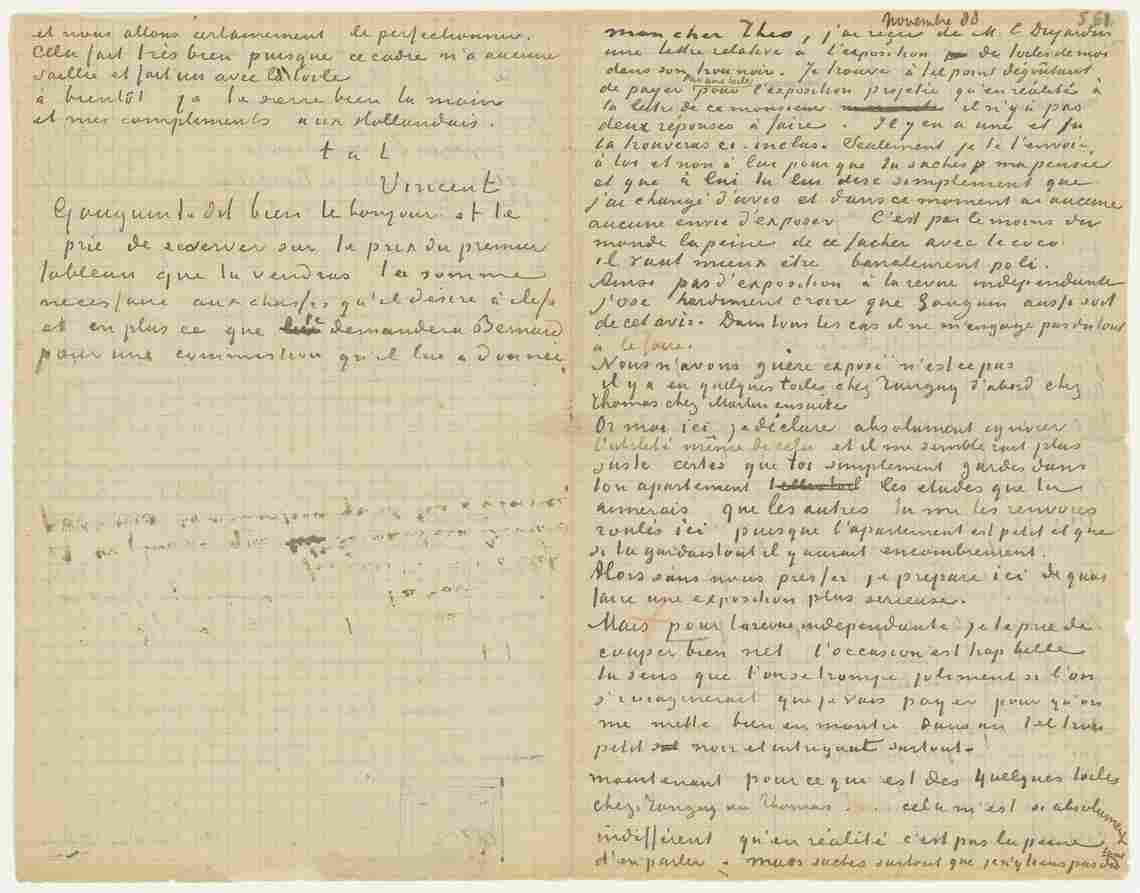 et nous allons certainement le perfectionner.
Cela fait très bien puisque ce cadre n'a aucune
saillie et fait un avec la toile
à bientôt je te serre bien la main
et mes compliments aux Hollandais.
t à t
Vincent
Gauguin te dit bien le bonjour et te
prie de reserver sur le prix du premier
tableau que tu vendras la somme
necessaire aux chassis qu'il désire à clefs
et en plus ce que lui demandera Bernard
pour une commission qu'il lui a donnée.
Novembre 88 561
mon cher Theo, j'ai reçu de M. E Dujardin
une lettre relative à l'exposition de toiles de moi
dans son trou noir. Je trouve à tel point degoûtant
de payer par une toile pour l'exposition projetée qu'en réalités à
la lettre de ce monsieur il n'y a pas
deux réponses à faire. Il y en a une et tu
la trouveras ci-inclus. Seulement je te l'envoie,
à toi et non à lui pour que tu saches ma pensée
et que à lui tu lui dise simplement que
j'ai changé d'avis et dans ce moment ai aucune
aucune envie d'exposer. C'est pas le moins du
monde la peine de ce facher avec le coco.
il vaut mieux être banalement poli.
Ainsi pas d'exposition à la revue independante
j'ose hardiment croire que Gauguin aussi soit
de cet avis. Dans tous les cas il ne m'engage pas du tout
à le faire.
Nous n'avons guère exposé n'est ce pas
il y a eu quelques toiles chez Tanguy d'abord chez
Thomas chez Martin ensuite
Or moi ici je déclare absolument ignorer
l'utilité même de cela et il me semblerait plus
juste certes que toi simplement gardes dans
ton apartement les etudes que tu
aimerais que les autres tu me les renvoies
roulés ici puisque l'apartement est petit et que
si tu gardais tout il y aurait encombrement.
Alors sans nous presser je prepare ici de quoi
faire une exposition plus serieuse.
Mais pour la revue independante je te prie de
couper bien net l'occasion est trop belle
tu sens que l'on se trompe joliment si l'on
s'imaginerait que je vais payer pour qu'on
me mette bien en montre dans un tel trou
petit noir et intrigant surtout.
maintenant pour ce qui est des quelques toiles
chez Tanguy ou Thomas .... cela m'est si absolument
indifférent qu'en réalité c'est pas la peine
d'en parler. mais saches surtout que je n'y tiens pas du tout